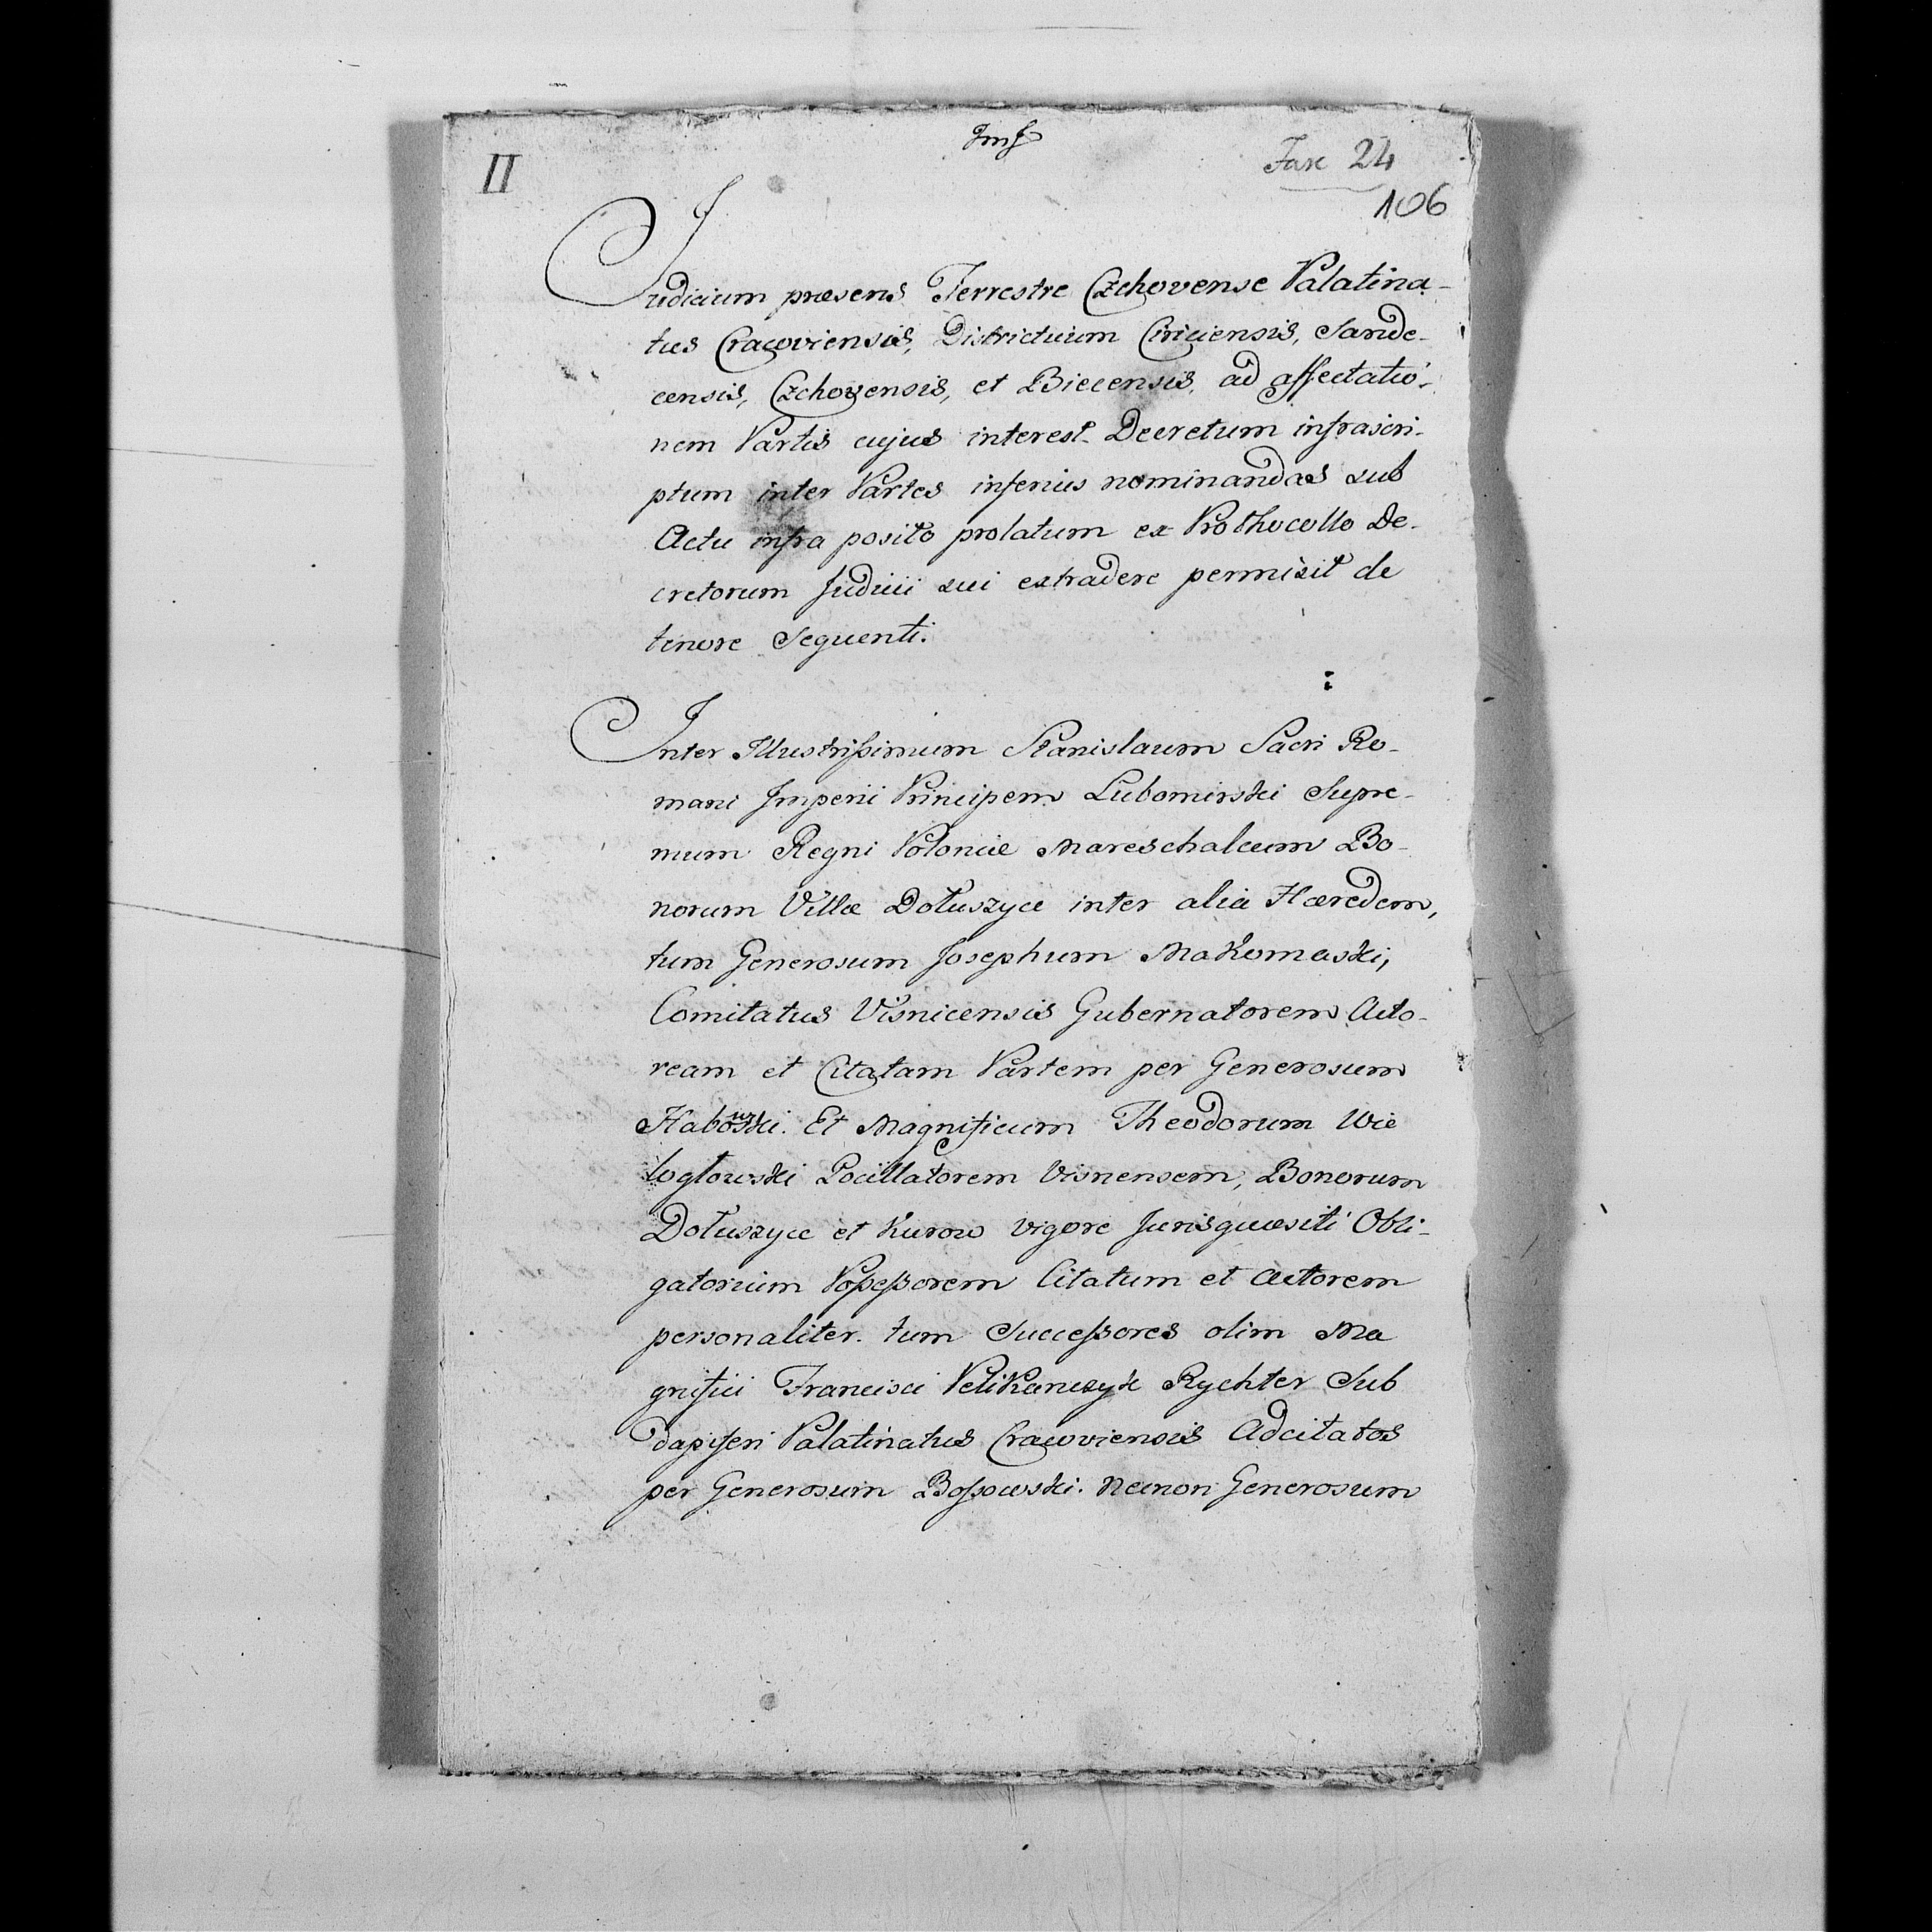 II
Fasc 24
106
Judicium præsens Terrestre Czchovense Palatina-
tus Cracoviensis, Districtuum Ciricensis, Sande-
censis, Czchovensis, et Biecensis, ad affectatio-
nem Partis cujus interest Decretum infrascri-
ptum inter Partes inferius nominandas sub
Actu infra posito prolatum ex Prothocollo De-
cretorum Judicii sui extradere permisit de
tenore Sequenti.
Inter Illustrissimum Stanislaum Sacri Ro-
mani Imperii Principem Lubomirski Supre-
mum Regni Poloniæ Mareschalcum Bo-
norum Villæ Dołuszyce inter alia Hæredem,
tum Generosum Josephum Makomaski,
Comitatus Visnicensis Gubernatorem Acto-
ream et Citatam Partem per Generosum
Et Magnificum Theodorum Wie
logłowski Pocillatorem Visnensem, Bonorum
Dołuszyce et Kurow vigore Jurisquæsiti Obli-
gatorium Possessorem Citatum et Actorem
personaliter. tum Successores olim Ma
gnifici Francisci Pelikanczyk Rychter Sub
dapiferi Palatinatus Cracoviensis Adcitatos
per Generosum Bossowski. Necnon Generosum